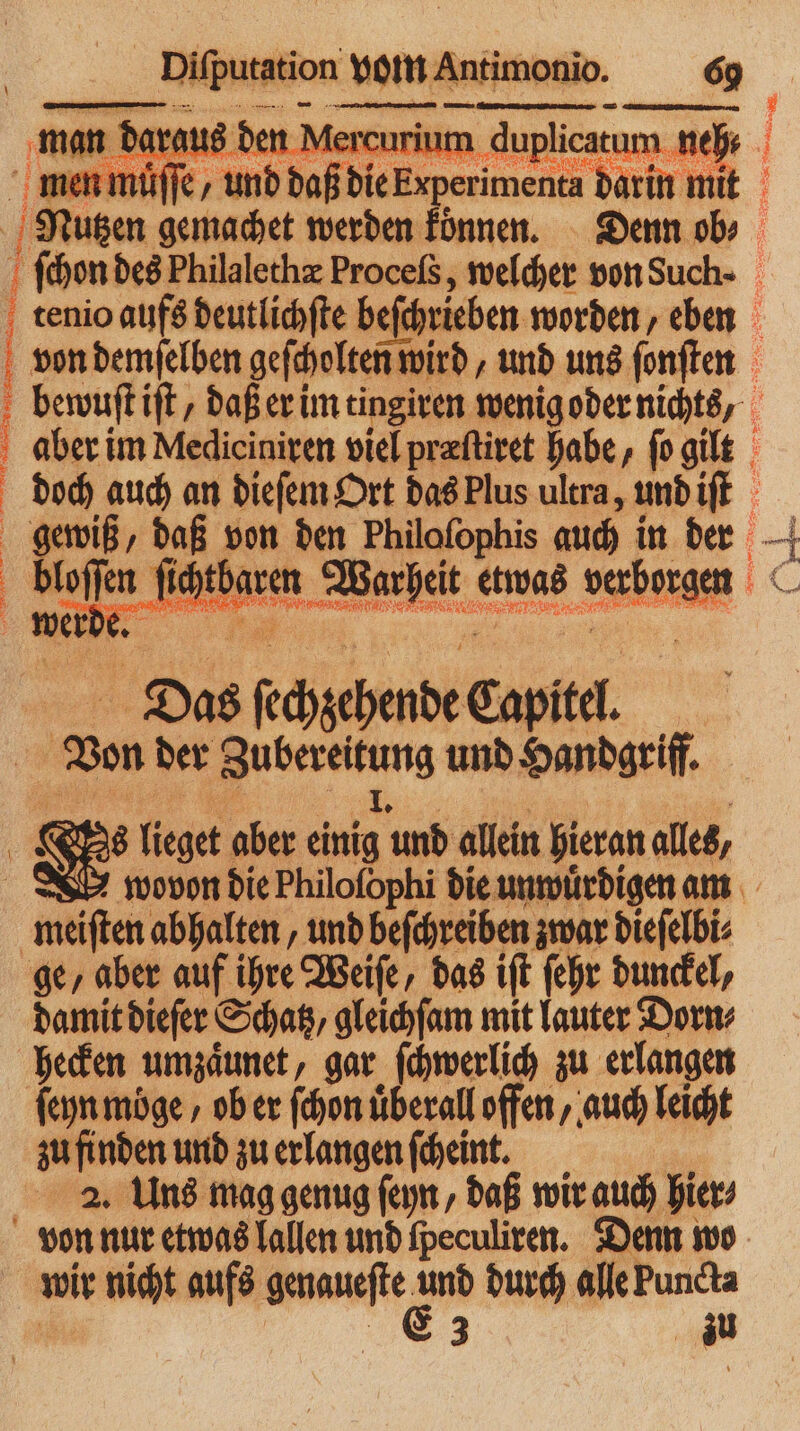 Diſputation vom Antimonio. 69
man daraus den Mercurium duplicatum neh⸗
men muͤſſe, und daß die Experimenta darin mit
Nutzen gemachet werden koͤnnen. Denn ob⸗
ſchon des Philalethæ Proceſs, welcher von Such-
tenio aufs deutlichſte beſchrieben worden, eben
von demſelben geſcholten wird, und uns ſonſten
bewuſt iſt, daß er im tingiren wenig oder nichts,
aber im Mediciniren viel præſtiret habe, ſo gilt
doch auch an dieſem Ort das Plus ultra, und iſt
gewiß, daß von den Philoſophis auch in der
bloſſen ſichtbaren Warheit etwas verborgen
werde.
Das ſechzehende Capitel.
Von der Zubereitung und Handgriff.
I.
Es lieget aber einig und allein hieran alles,
wovon die Philoſophi die unwuͤrdigen am
meiſten abhalten, und beſchreiben zwar dieſelbi⸗
ge, aber auf ihre Weiſe, das iſt ſehr dunckel,
damit dieſer Schatz, gleichſam mit lauter Dorn⸗
hecken umzaͤunet, gar ſchwerlich zu erlangen
ſeyn moͤge, ob er ſchon uͤberall offen, auch leicht
zu finden und zu erlangen ſcheint.
2. Uns mag genug ſeyn, daß wir auch hier⸗
von nur etwas lallen und ſpeculiren. Denn wo
wir nicht aufs genaueſte und durch alle Puncta
E 3 zu